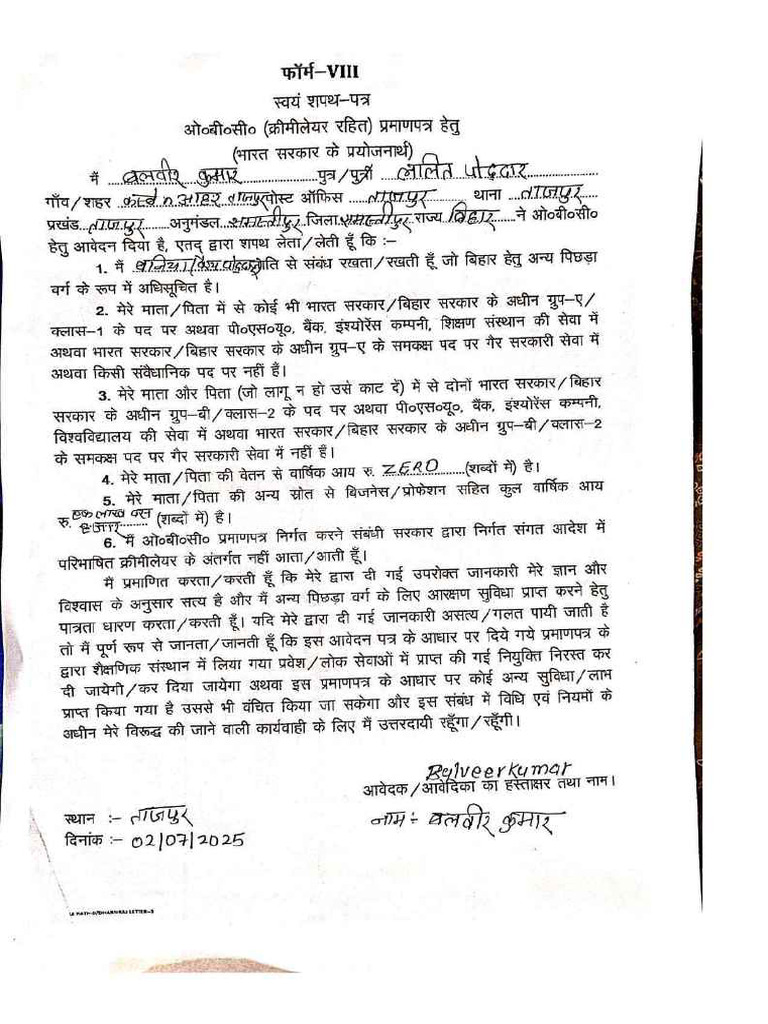 फॉर्म–VIII
स्वयं शपथ–पत्र
ओ०बी०सी० (क्रीमीलेयर रहित) प्रमाणपत्र हेतु
(भारत सरकार के प्रयोजनार्थ)
मैं बलवीर कुमार पुत्र/पुत्री ललित पोद्दार
गाँव/शहर ताजपुर पोस्ट ऑफिस ताजपुर थाना ताजपुर
प्रखंड ताजपुर अनुमंडल समस्तीपुर जिला समस्तीपुर राज्य बिहार ने ओ०बी०सी०
हेतु आवेदन दिया है, एतद् द्वारा शपथ लेता/लेती हूँ कि :–
1. मैं बनिया जाति से संबंध रखता/रखती हूँ जो बिहार हेतु अन्य पिछड़ा
वर्ग के रूप में अधिसूचित है।
2. मेरे माता/पिता में से कोई भी भारत सरकार/बिहार सरकार के अधीन ग्रुप–ए/
क्लास–1 के पद पर अथवा पी०एस०यू०, बैंक, इंश्योरेंस कम्पनी, शिक्षण संस्थान की सेवा में
अथवा भारत सरकार/बिहार सरकार के अधीन ग्रुप–ए के समकक्ष पद पर गैर सरकारी सेवा में
अथवा किसी संवैधानिक पद पर नहीं हैं।
3. मेरे माता और पिता (जो लागू न हो उसे काट दें) में से दोनों भारत सरकार/बिहार
सरकार के अधीन ग्रुप–बी/क्लास–2 के पद पर अथवा पी०एस०यू०, बैंक, इंश्योरेंस कम्पनी,
विश्वविद्यालय की सेवा में अथवा भारत सरकार/बिहार सरकार के अधीन ग्रुप–बी/क्लास–2
के समकक्ष पद पर गैर सरकारी सेवा में नहीं हैं।
4. मेरे माता/पिता की वेतन से वार्षिक आय रु. ZERO (शब्दों में) है।
5. मेरे माता/पिता की अन्य स्रोत से बिजनेस/प्रोफेशन सहित कुल वार्षिक आय
रु. एक लाख दस
हजार (शब्दों में) है।
6. मैं ओ०बी०सी० प्रमाणपत्र निर्गत करने संबंधी सरकार द्वारा निर्गत संगत आदेश में
परिभाषित क्रीमीलेयर के अंतर्गत नहीं आता/आती हूँ।
मैं प्रमाणित करता/करती हूँ कि मेरे द्वारा दी गई उपरोक्त जानकारी मेरे ज्ञान और
विश्वास के अनुसार सत्य है और मैं अन्य पिछड़ा वर्ग के लिए आरक्षण सुविधा प्राप्त करने हेतु
पात्रता धारण करता/करती हूँ। यदि मेरे द्वारा दी गई जानकारी असत्य/गलत पायी जाती है
तो मैं पूर्ण रूप से जानता/जानती हूँ कि इस आवेदन पत्र के आधार पर दिये गये प्रमाणपत्र के
द्वारा शैक्षणिक संस्थान में लिया गया प्रवेश/लोक सेवाओं में प्राप्त की गई नियुक्ति निरस्त कर
दी जायेगी/कर दिया जायेगा अथवा इस प्रमाणपत्र के आधार पर कोई अन्य सुविधा/लाभ
प्राप्त किया गया है उससे भी वंचित किया जा सकेगा और इस संबंध में विधि एवं नियमों के
अधीन मेरे विरूद्ध की जाने वाली कार्यवाही के लिए मैं उत्तरदायी रहूँगा/रहूँगी।
Balveer kumar
आवेदक/आवेदिका का हस्ताक्षर तथा नाम।
स्थान :– ताजपुर
नाम :- बलवीर कुमार
दिनांक :– 02/07/2025